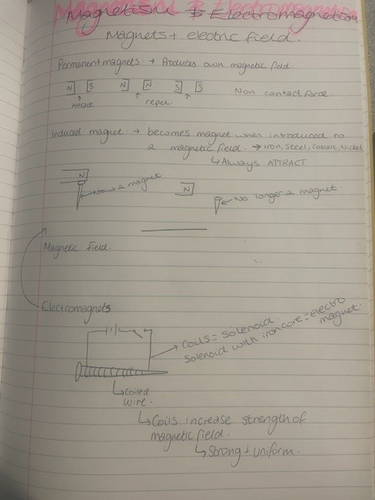 Magnetism & Electromagnetism
Magnets + electric field.
Permanent magnets → Produces own magnetic field
N S N N S S Non contact force
attract repel
Induced magnet → becomes magnet when introduced to
a magnetic field. → iron, Steel, Cobalt, Nickel
↳ Always ATTRACT
N
Now a magnet
N
No longer a magnet.
Magnetic Field.
Electromagnets
Coils = Solenoid
Solenoid with iron core = electro
magnet.
↳ Coiled
wire.
↳ Coils increase strength of
magnetic field.
↳ Strong + uniform.